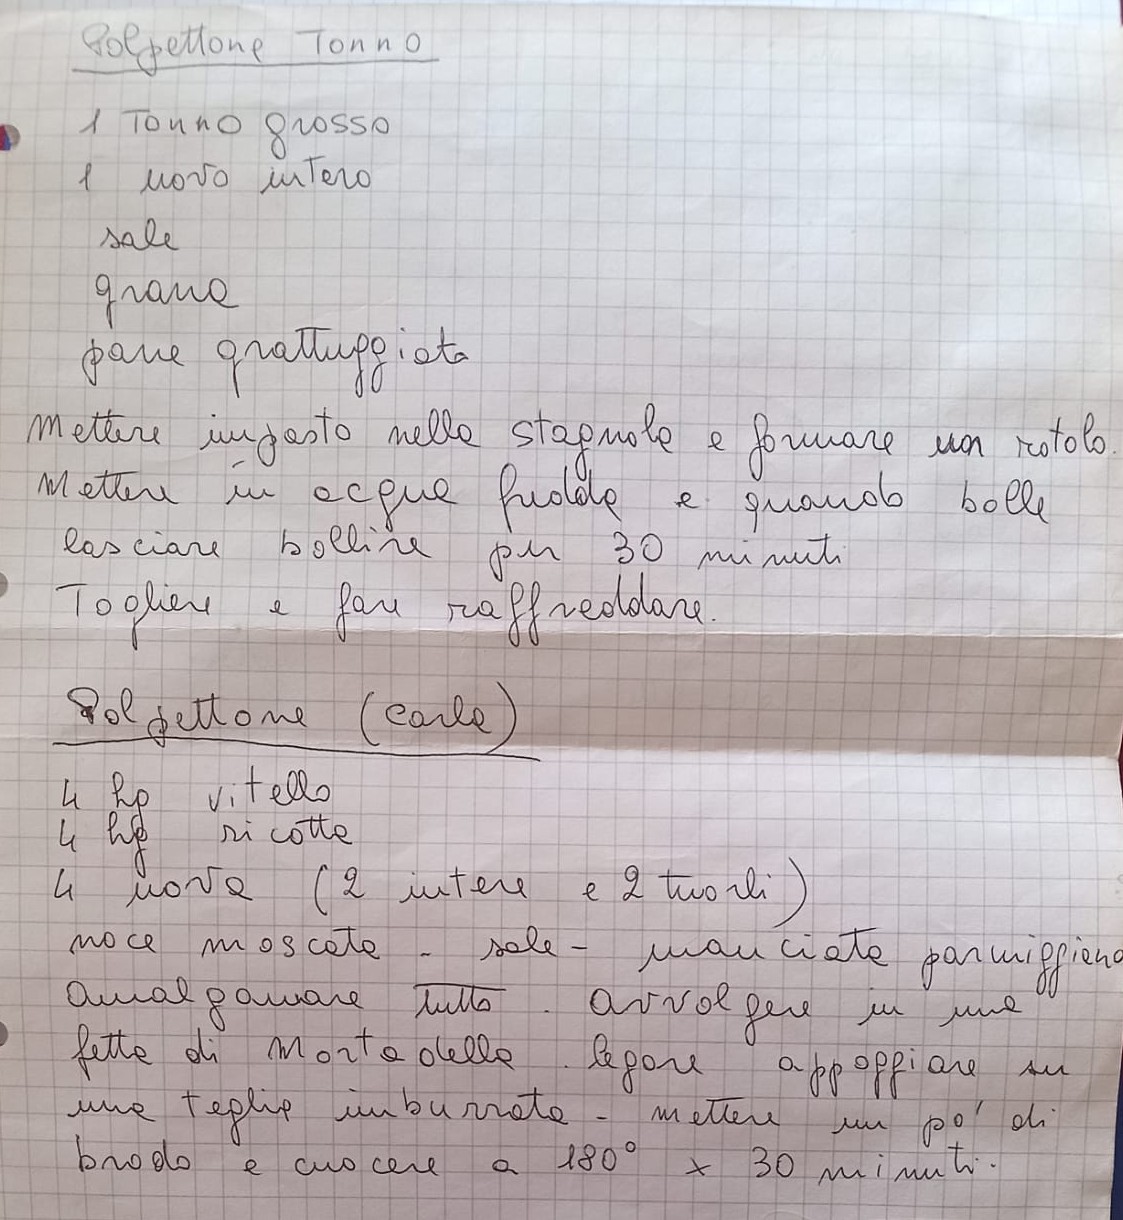 Polpettone Tonno
1 Tonno grosso
1 uovo intero
sale
grana
pane grattuggiato
Mettere impasto nella stagnola e formare un rotolo.
Mettere in acqua fredda e quando bolle
lasciare bollire per 30 minuti
Togliere e fare raffreddare.
Polpettone (Carla)
4 hg vitello
4 hg ricotta
4 uova (2 intere e 2 tuorli)
noce moscata - sale - manciata parmiggiano
Amalgamare tutto. Avvolgere in una
fetta di Mortadella. legare appoggiare su
una teglia imburrata - mettere un po' di
brodo e cuocere a 180° x 30 minuti.